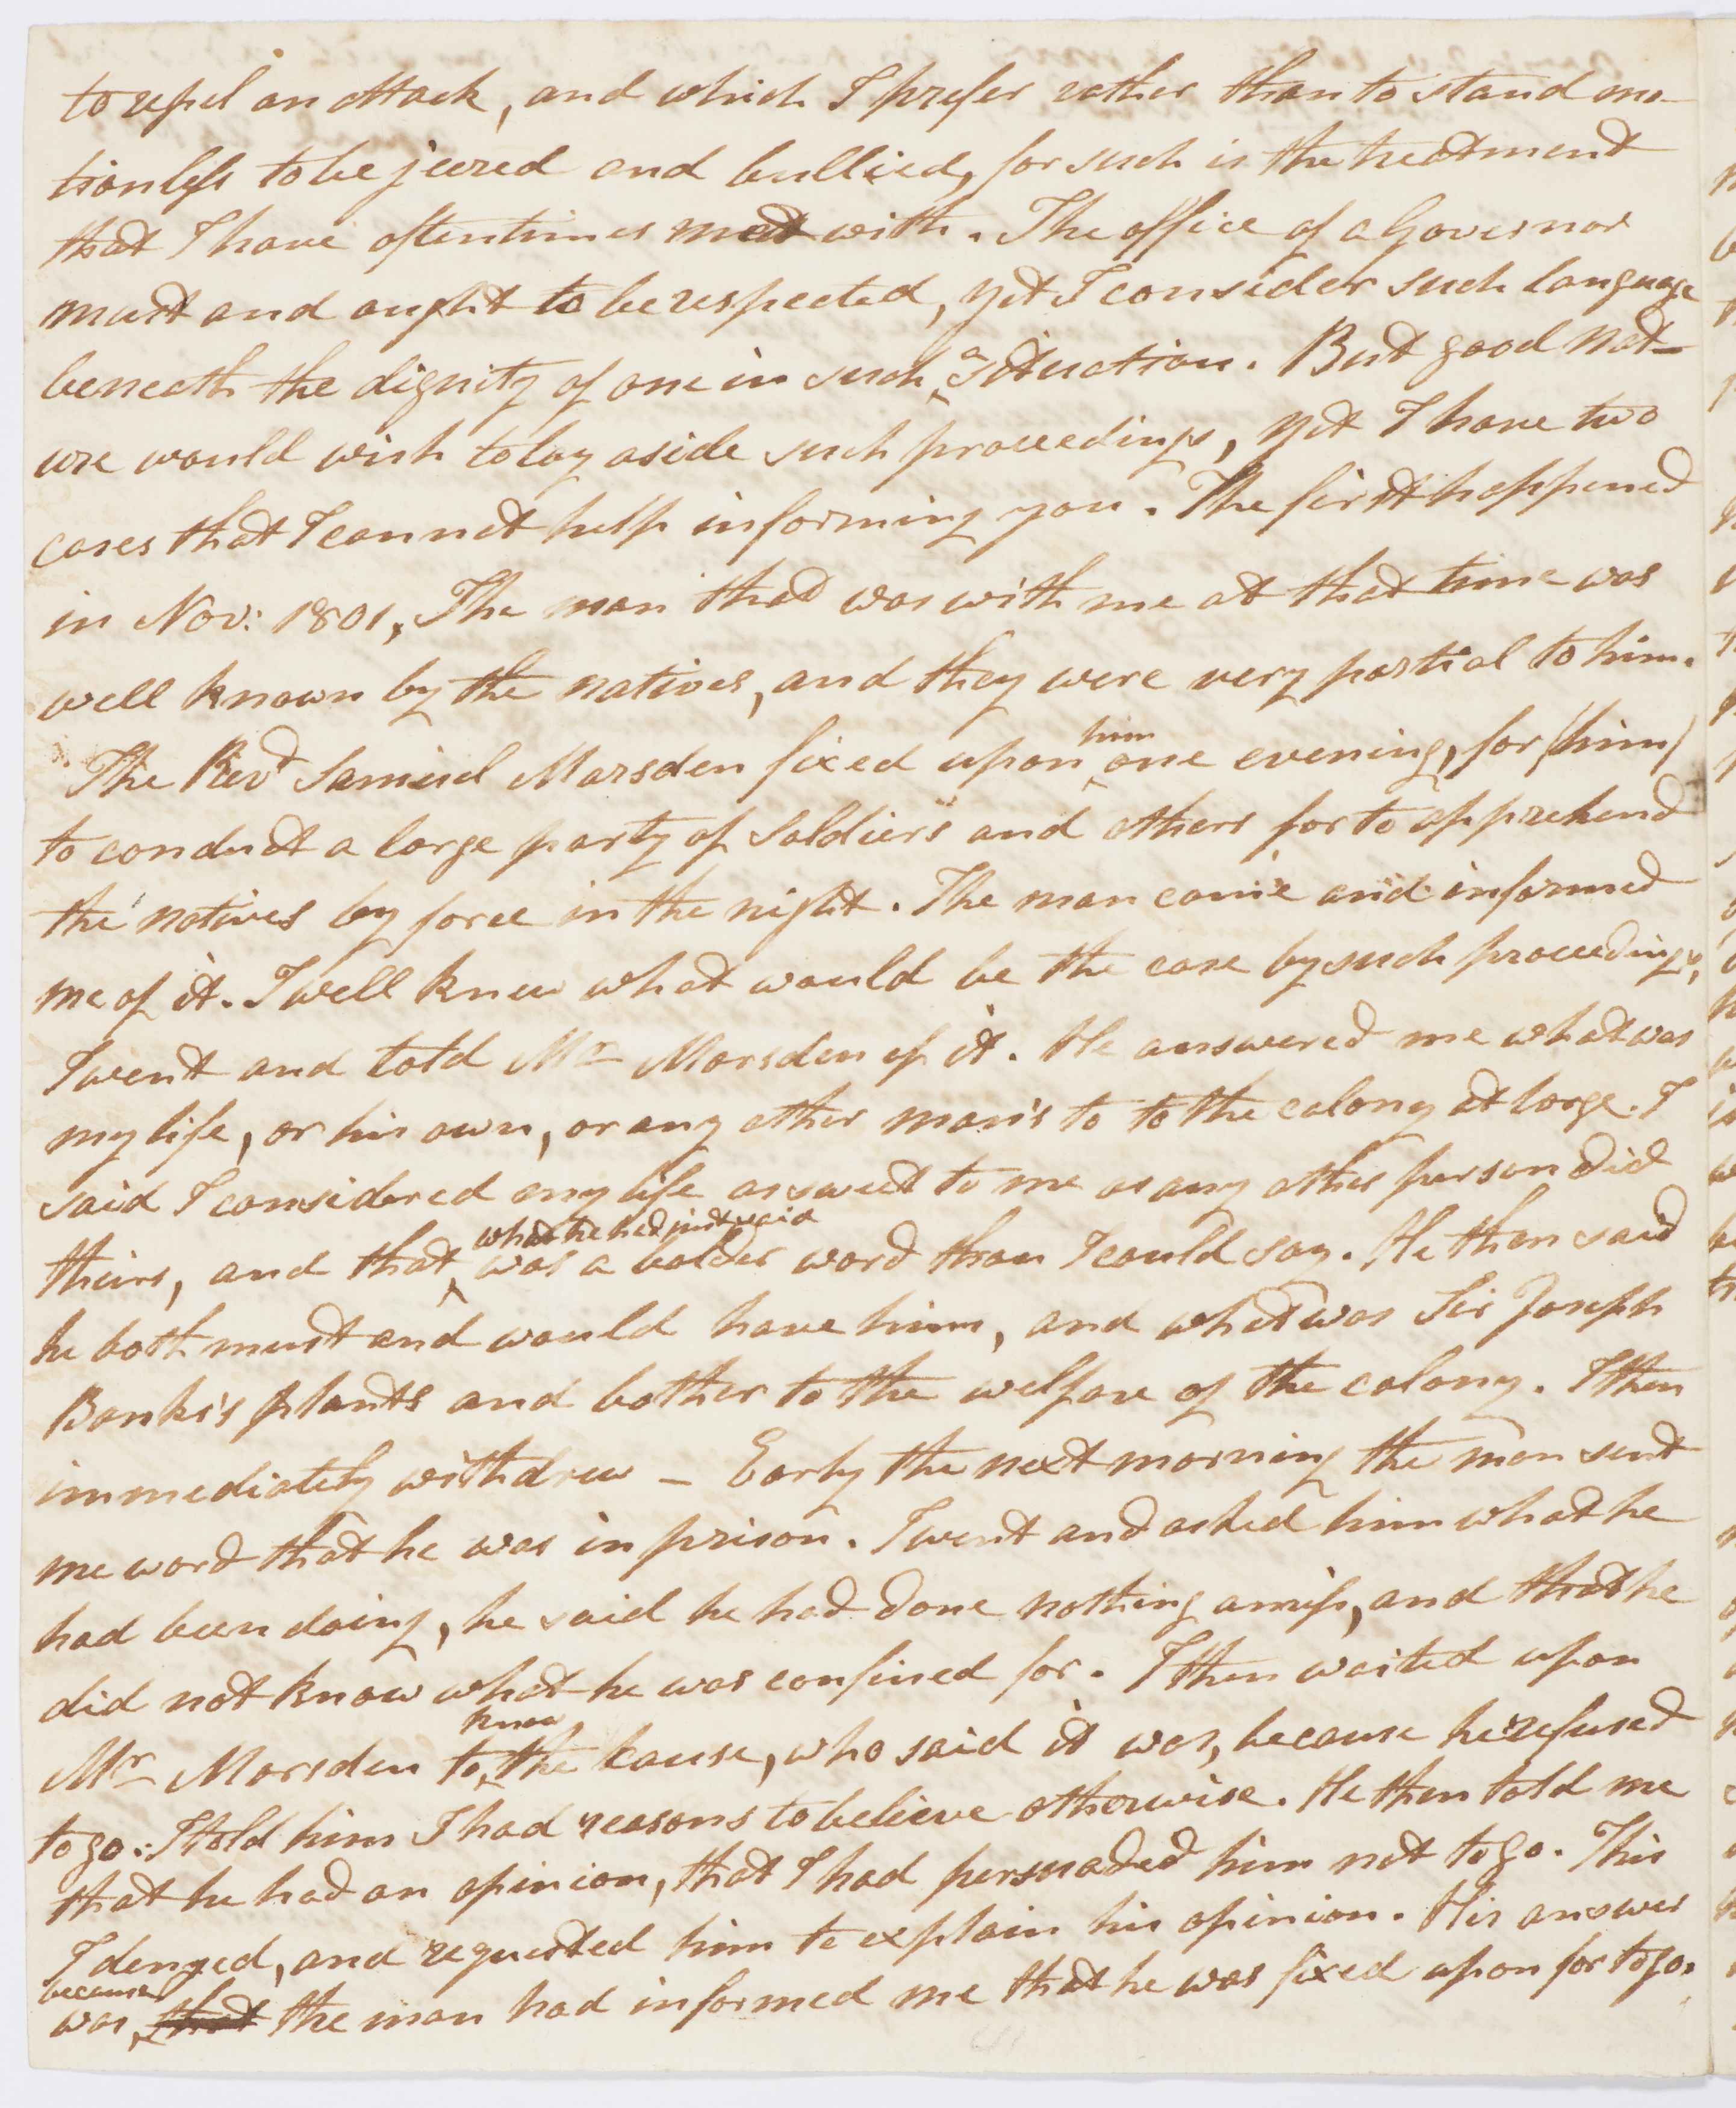 to repel an attack, and which I prefer rather than to stand mo-
tionless to be jeered and bullied, for such is the treatment
that I have oftentimes met with. The office of a Governor
must and aught to be respected, yet I consider such language
beneath the dignity of one in such ^a situation. But good nat-
ure would wish to lay aside such proceedings, yet I have two
cases that I cannot help informing you. The first happened
in Nov: 1801, The man that was with me at that time was
well known by the natives, and they were very partial to him.
The Revd Samuel Marsden fixed upon ^him one evening, for (him)
to conduct a large party of Soldiers and others for to apprehend
the natives by force in the night. The man came and informed
me of it. I well knew what would be the case by such proceedings,
I went and told Mr Marsden of it. He answered me what was
my life, or his own, or any other man's to to the colony at large. I
said I considered my life as sweet to me as any other person did
theirs, and that ^what he had just said was a bolder word than I could say. He then said
he both must and would have him, and what was Sir Joseph
Banks's plants and bother to the welfare of the colony. I then
immediately withdrew — Early the next morning the man sent
me word that he was in prison. I went and asked him what he
had been doing, he said he had done nothing amiss, and that he
did not know what he was confined for. I then waited upon
Mr Marsden to ^know the cause, who said it was, because he refused
to go: I told him I had reasons to believe otherwise. He then told me
that he had an opinion, that I had persuaded him not to go. This
I denyed, and requested him to explain his opinion. His answer
was, ^because that the man had informed me that he was fixed upon for to go.